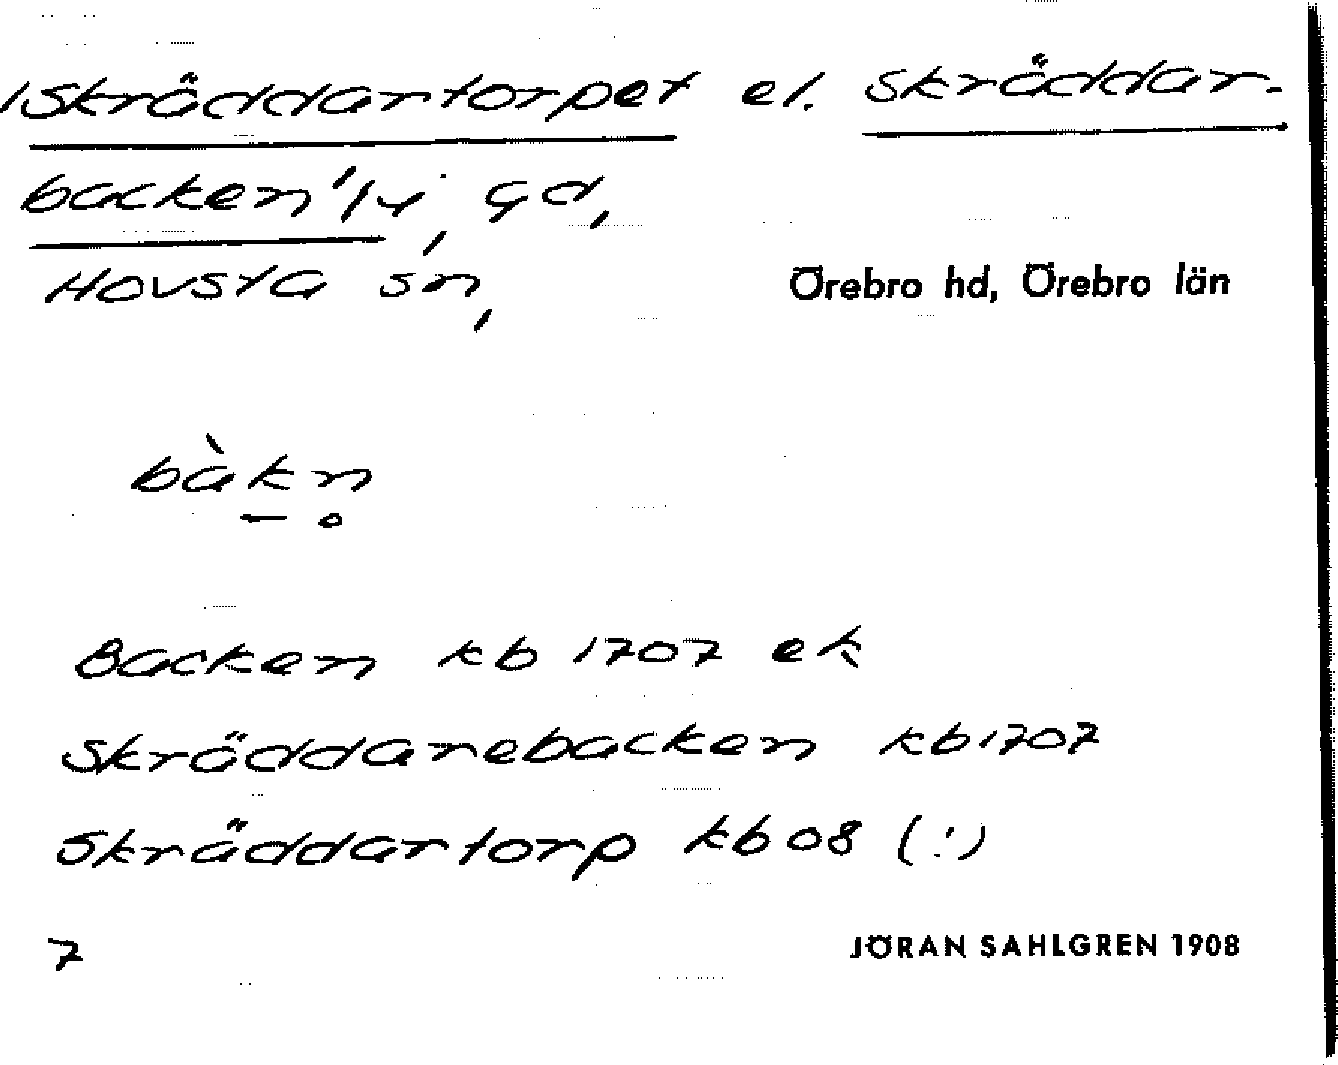 Skräddartorpet el. Skräddar-
backen 1/4, gd,
Hovsta sn, Örebro hd, Örebro län
bàkn
Backen kb 1707 ek
Skräddarebacken kb 1707
Skräddartorp kb 08 (!)
7 JÖRAN SAHLGREN 1908